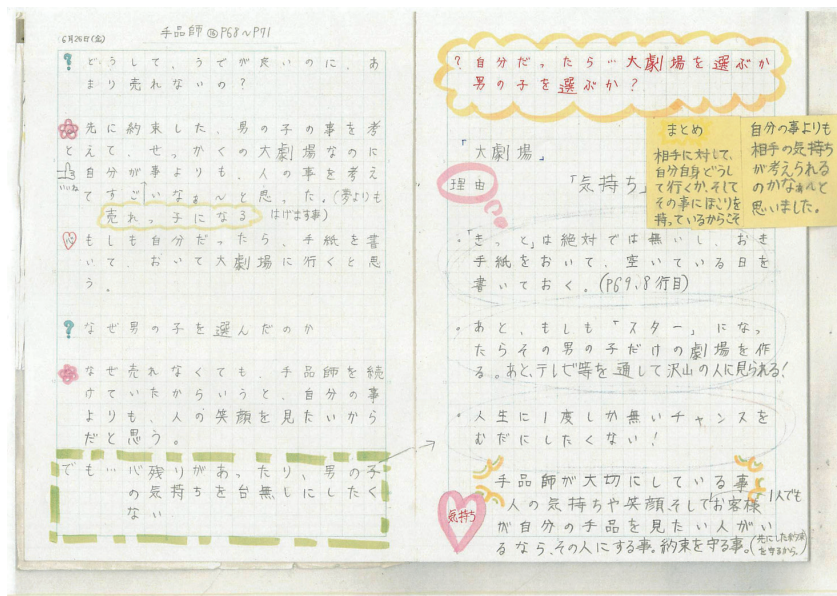 6月26日(金)
手品師⑯P68～P71
? どうして、うでが良いのに、あ
まり売れないの?
先に約束した、男の子の事を考
とえて、せっかくの大劇場なのに
自分が事よりも、人の事を考え
いいね
てすごいなぁ～んと思った。(夢よりも
売れっ子になる はげます事)
心 もしも自分だったら、手紙を書
いて、おいて大劇場に行くと思
う。
? なぜ男の子を選んだのか
なぜ売れなくても、手品師を続
けていたからいうと、自分の事
よりも、人の笑顔を見たいから
だと思う。
でも…心残りがあったり、男の子
の気持ちを台無しにしたく
ない
? 自分だったら…大劇場を選ぶか
男の子を選ぶか?
「大劇場」
理由
「気持ち」
まとめ
相手に対して、
自分自身どうし
て行くか、そして
その事にほこりを
持っているからこそ
自分の事よりも
相手の気持ち
が考えられる
のかなぁ～んと
思いました。
・「きっと」は絶対では無いし、おき
手紙をおいて、空いている日を
書いておく。(P69、8行目)
・あと、もしも「スター」になっ
たらその男の子だけの劇場を作
る。あと、テレビ等を通して沢山の人に見られる!
・人生に1度しか無いチャンスを
むだにしたくない!
手品師が大切にしている事
、人の気持ちや笑顔、そしてお客様 1人でも
気持ち
が自分の手品を見たい人がい
るなら、その人にする事。約束を守る事。(先にした約束を守るから。)